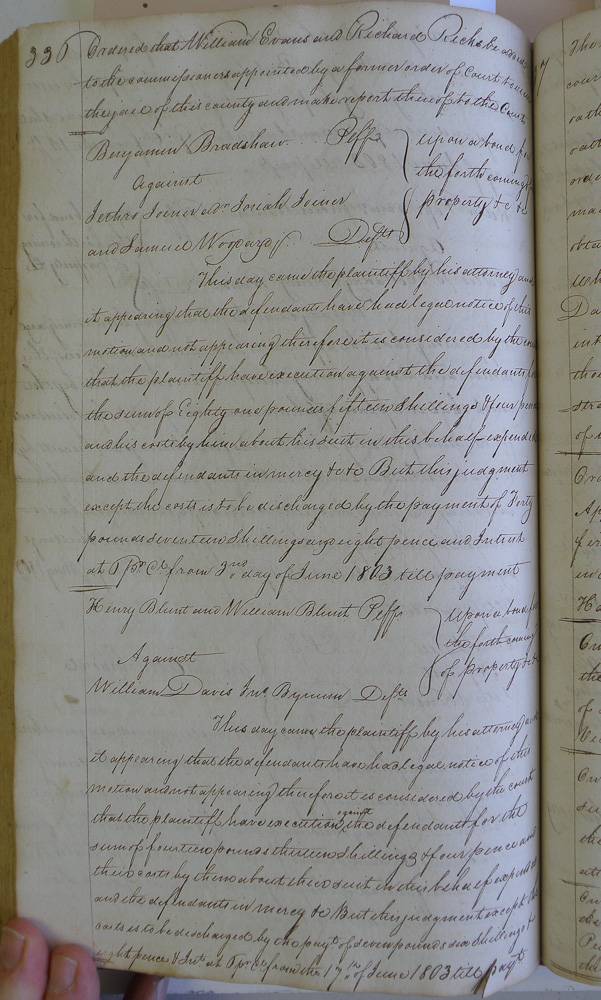 336 Ordered that William Evans and Richard Ricks be added
to the commissioners appointed by a former order of Court to
the jail of this county and make report thereof to the Court
Benjamin Bradshaw Peff
Against
Jethro Joiner Josiah Joiner
and Samuel Woodard Defts
upon a bond for
the forth coming of
property &c &c
This day came the plaintiff by his attorney and
it appearing that the defendants have had legal notice of this
motion and not appearing therefore it is considered by the court
that the plaintiff have execution against the defendants for
the sum of Eighty one pounds fifteen Shillings & four pence
and his costs by him about his suit in this behalf expended
and the defendants in mercy &c &c But this judgment
except the costs is to be discharged by the payment of Forty
pounds seventeen Shillings and eight pence and Interest
at 6 Pr. Ct. from 3nd day of June 1803 till payment
Henry Blunt and William Blunt Peffs
Against
William Davis Bynum Defts
upon a bond for
the forth coming
of property &c &c
This day came the plaintiff by his attorney and
it appearing that the defendants have had legal notice of this
motion and not appearing therefore it is considered by the court
that the plaintiff have execution against the defendants for the
sum of fourteen pounds thirteen Shillings & four pence and
their costs by them about their suit in this behalf expended
and the defendants in mercy &c But this judgment except the
costs is to be discharged by the payt. of seven pounds six Shillings &
eight pence & Intt. at 6 Pr. Ct. from the 17th. of June 1803 till payt